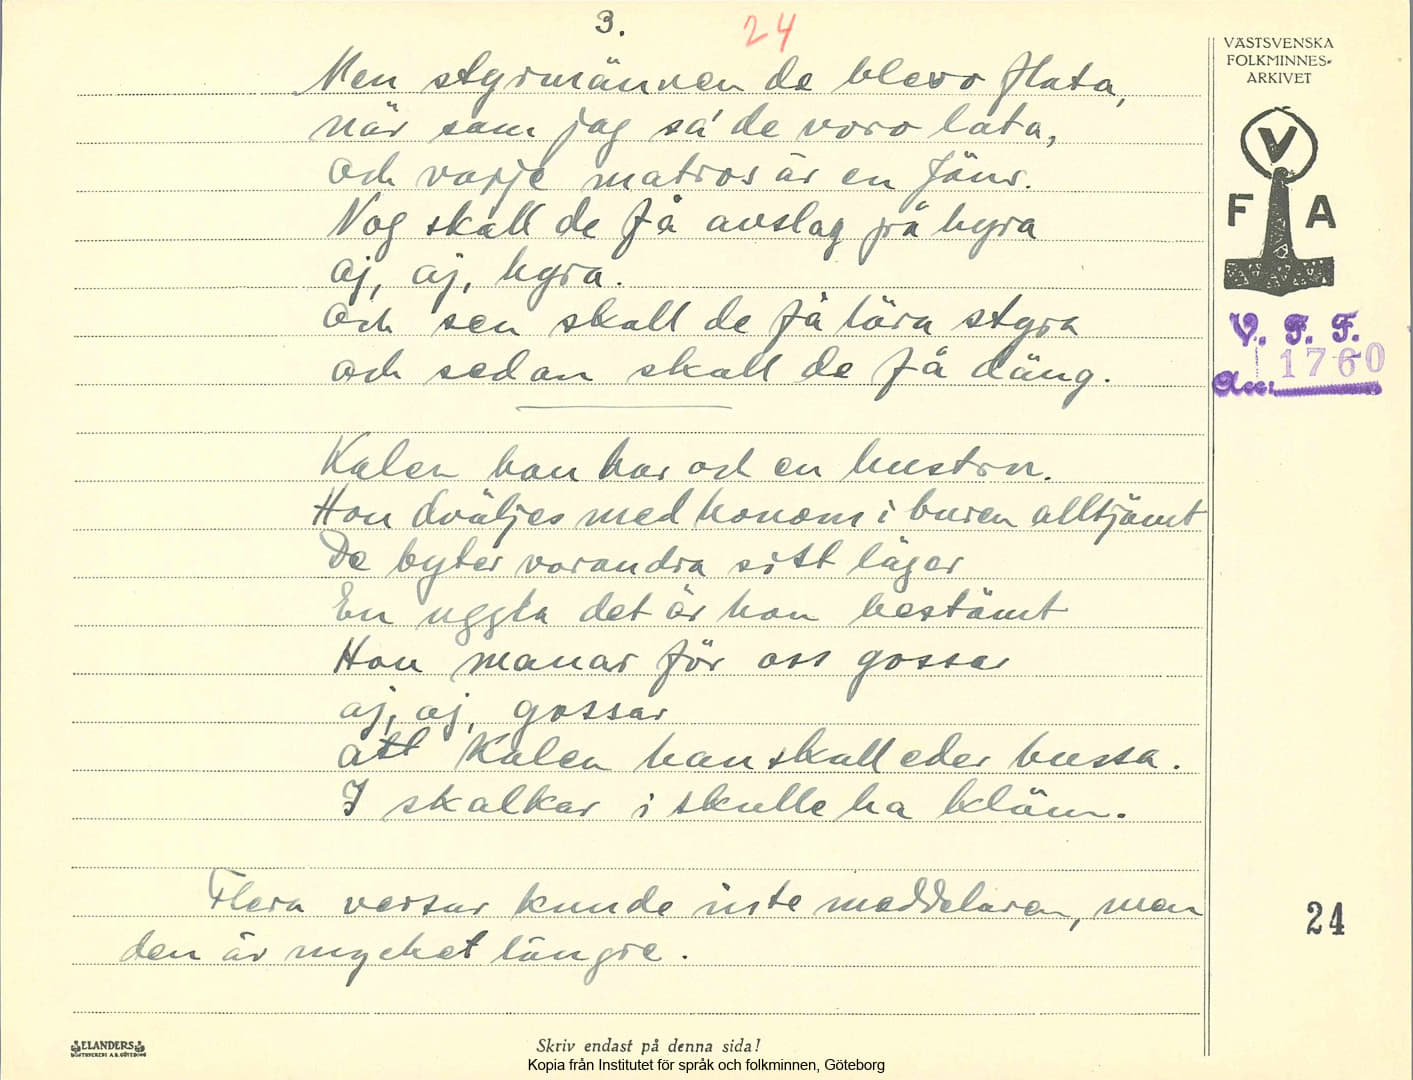 3.
24
Men styrmännen de blevo flata,
när som jag sa' de voro lata,
och varje matros är en fåne.
Nog skall de få avslag på hyra
aj, aj, hyra.
och sen skall de få lära styra
och sedan skall de få däng.
Kalen han har och en hustru.
Hon dväljes med honom i buren alltjämt
De byter varandra sitt läger
En uggla det är hon bestämt
Hon manar för oss gossar
aj, aj, gossar
att Kalen han skall eder bussa.
I skalkar i skulle ha kläm.
Flera versar kunde inte meddelaren, men
den är mycket längre.
VÄSTSVENSKA
FOLKMINNES-
ARKIVET
V
F A
V. F. F.
1760
Acc:
24
ELANDERS
BOKTRYCKERI A.B. GÖTEBORG
Skriv endast på denna sida!
Kopia från Institutet för språk och folkminnen, Göteborg